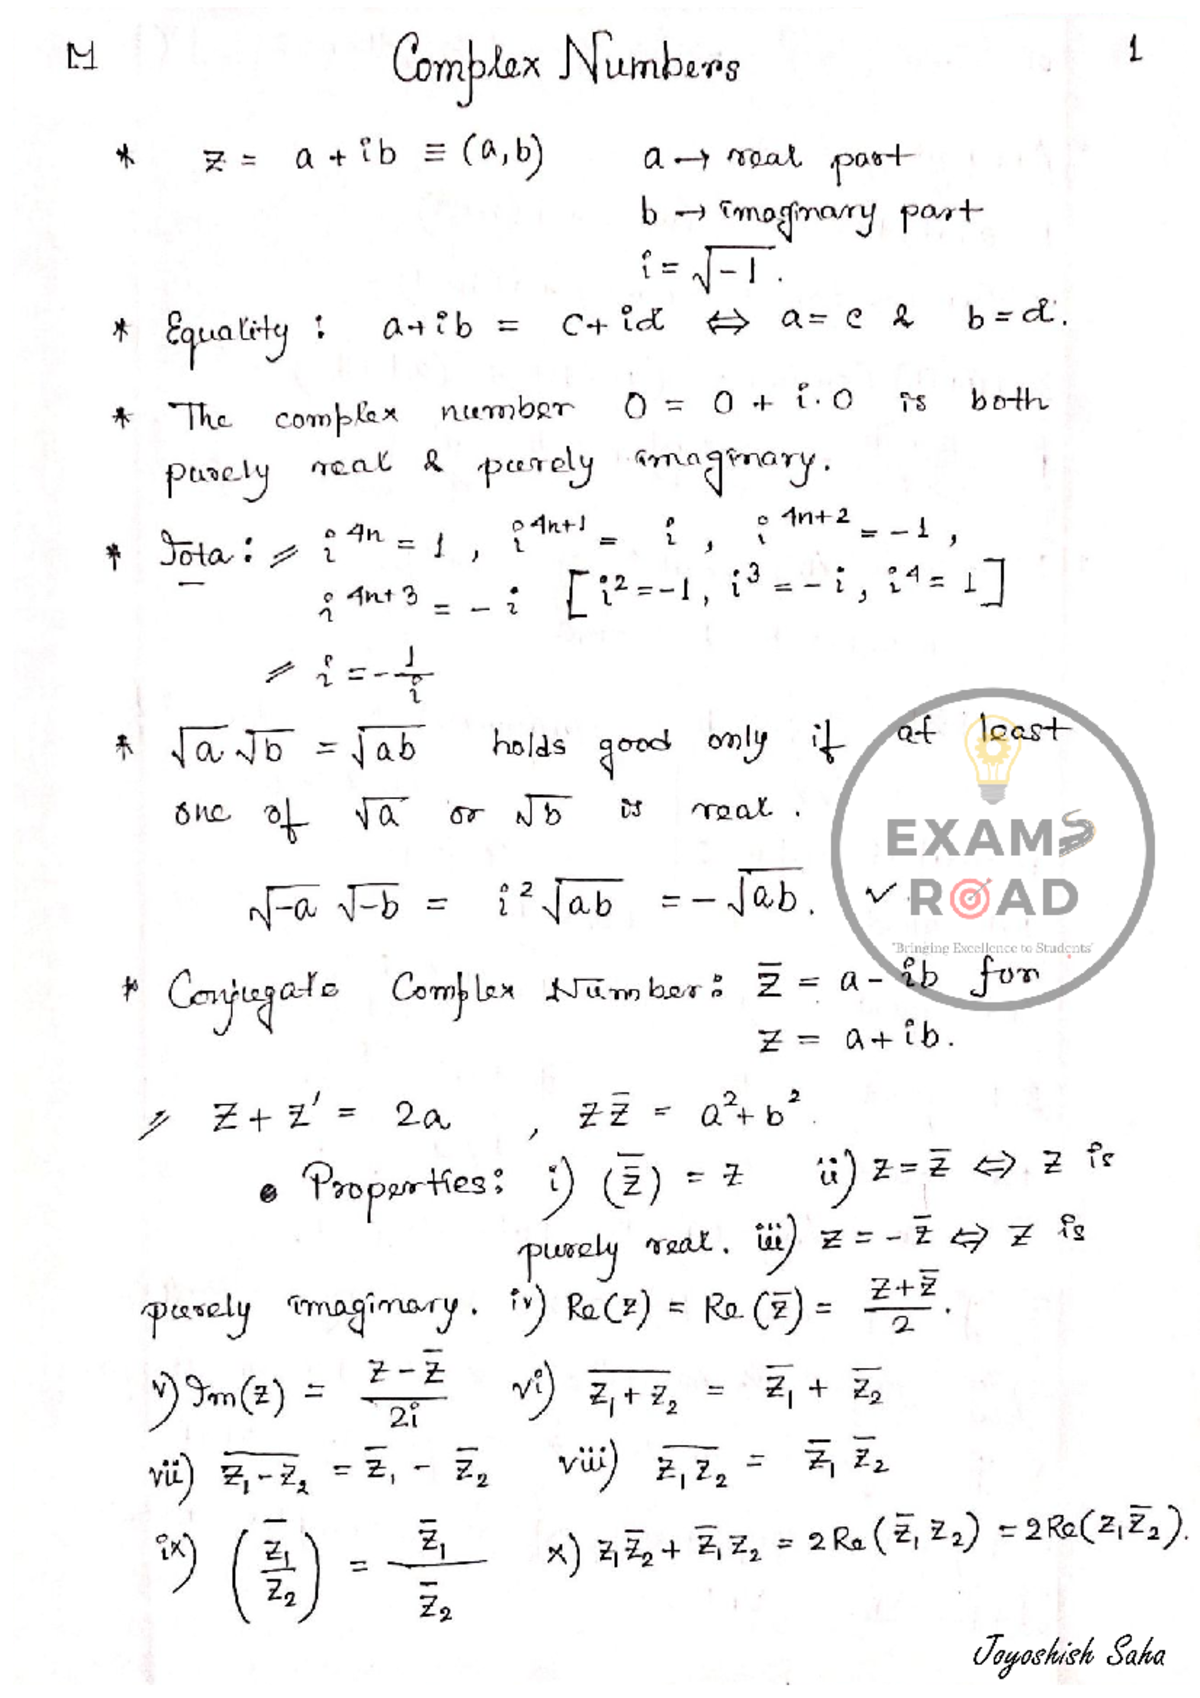 M Complex Numbers 1
* z = a + ib ≡ (a, b) a → real part
b → imaginary part
i = √-1.
* Equality : a + ib = c + id ⇔ a = c & b = d.
* The complex number 0 = 0 + i·0 is both
purely real & purely imaginary.
* Iota : ⇒ i^{4n} = 1, i^{4n+1} = i, i^{4n+2} = -1,
i^{4n+3} = -i [i² = -1, i³ = -i, i⁴ = 1]
⇒ i = -1/i
* √a √b = √ab holds good only if at least
one of √a or √b is real.
√-a √-b = i² √ab = -√ab. ✓
EXAMS ROAD
"Bringing Excellence to Students"
* Conjugate Complex Number : z̄ = a - ib for
z = a + ib.
⇒ z + z' = 2a, z z̄ = a² + b².
• Properties : i) \overline{(z̄)} = z ii) z = z̄ ⇔ z is
purely real. iii) z = -z̄ ⇔ z is
purely imaginary. iv) Re(z) = Re(z̄) = (z + z̄)/2.
v) Im(z) = (z - z̄)/2i vi) \overline{z₁ + z₂} = z̄₁ + z̄₂
vii) \overline{z₁ - z₂} = z̄₁ - z̄₂ viii) \overline{z₁ z₂} = z̄₁ z̄₂
ix) \overline{(z₁/z₂)} = z̄₁/z̄₂ x) z₁z̄₂ + z̄₁z₂ = 2Re(z̄₁z₂) = 2Re(z₁z̄₂).
Joyoshish Saha